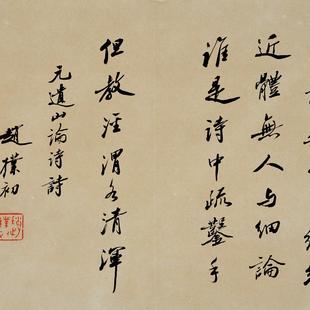 近體無人与細論
誰是诗中疏鑿手
但教涇渭各清渾
元遺山論诗詩
趙樸初